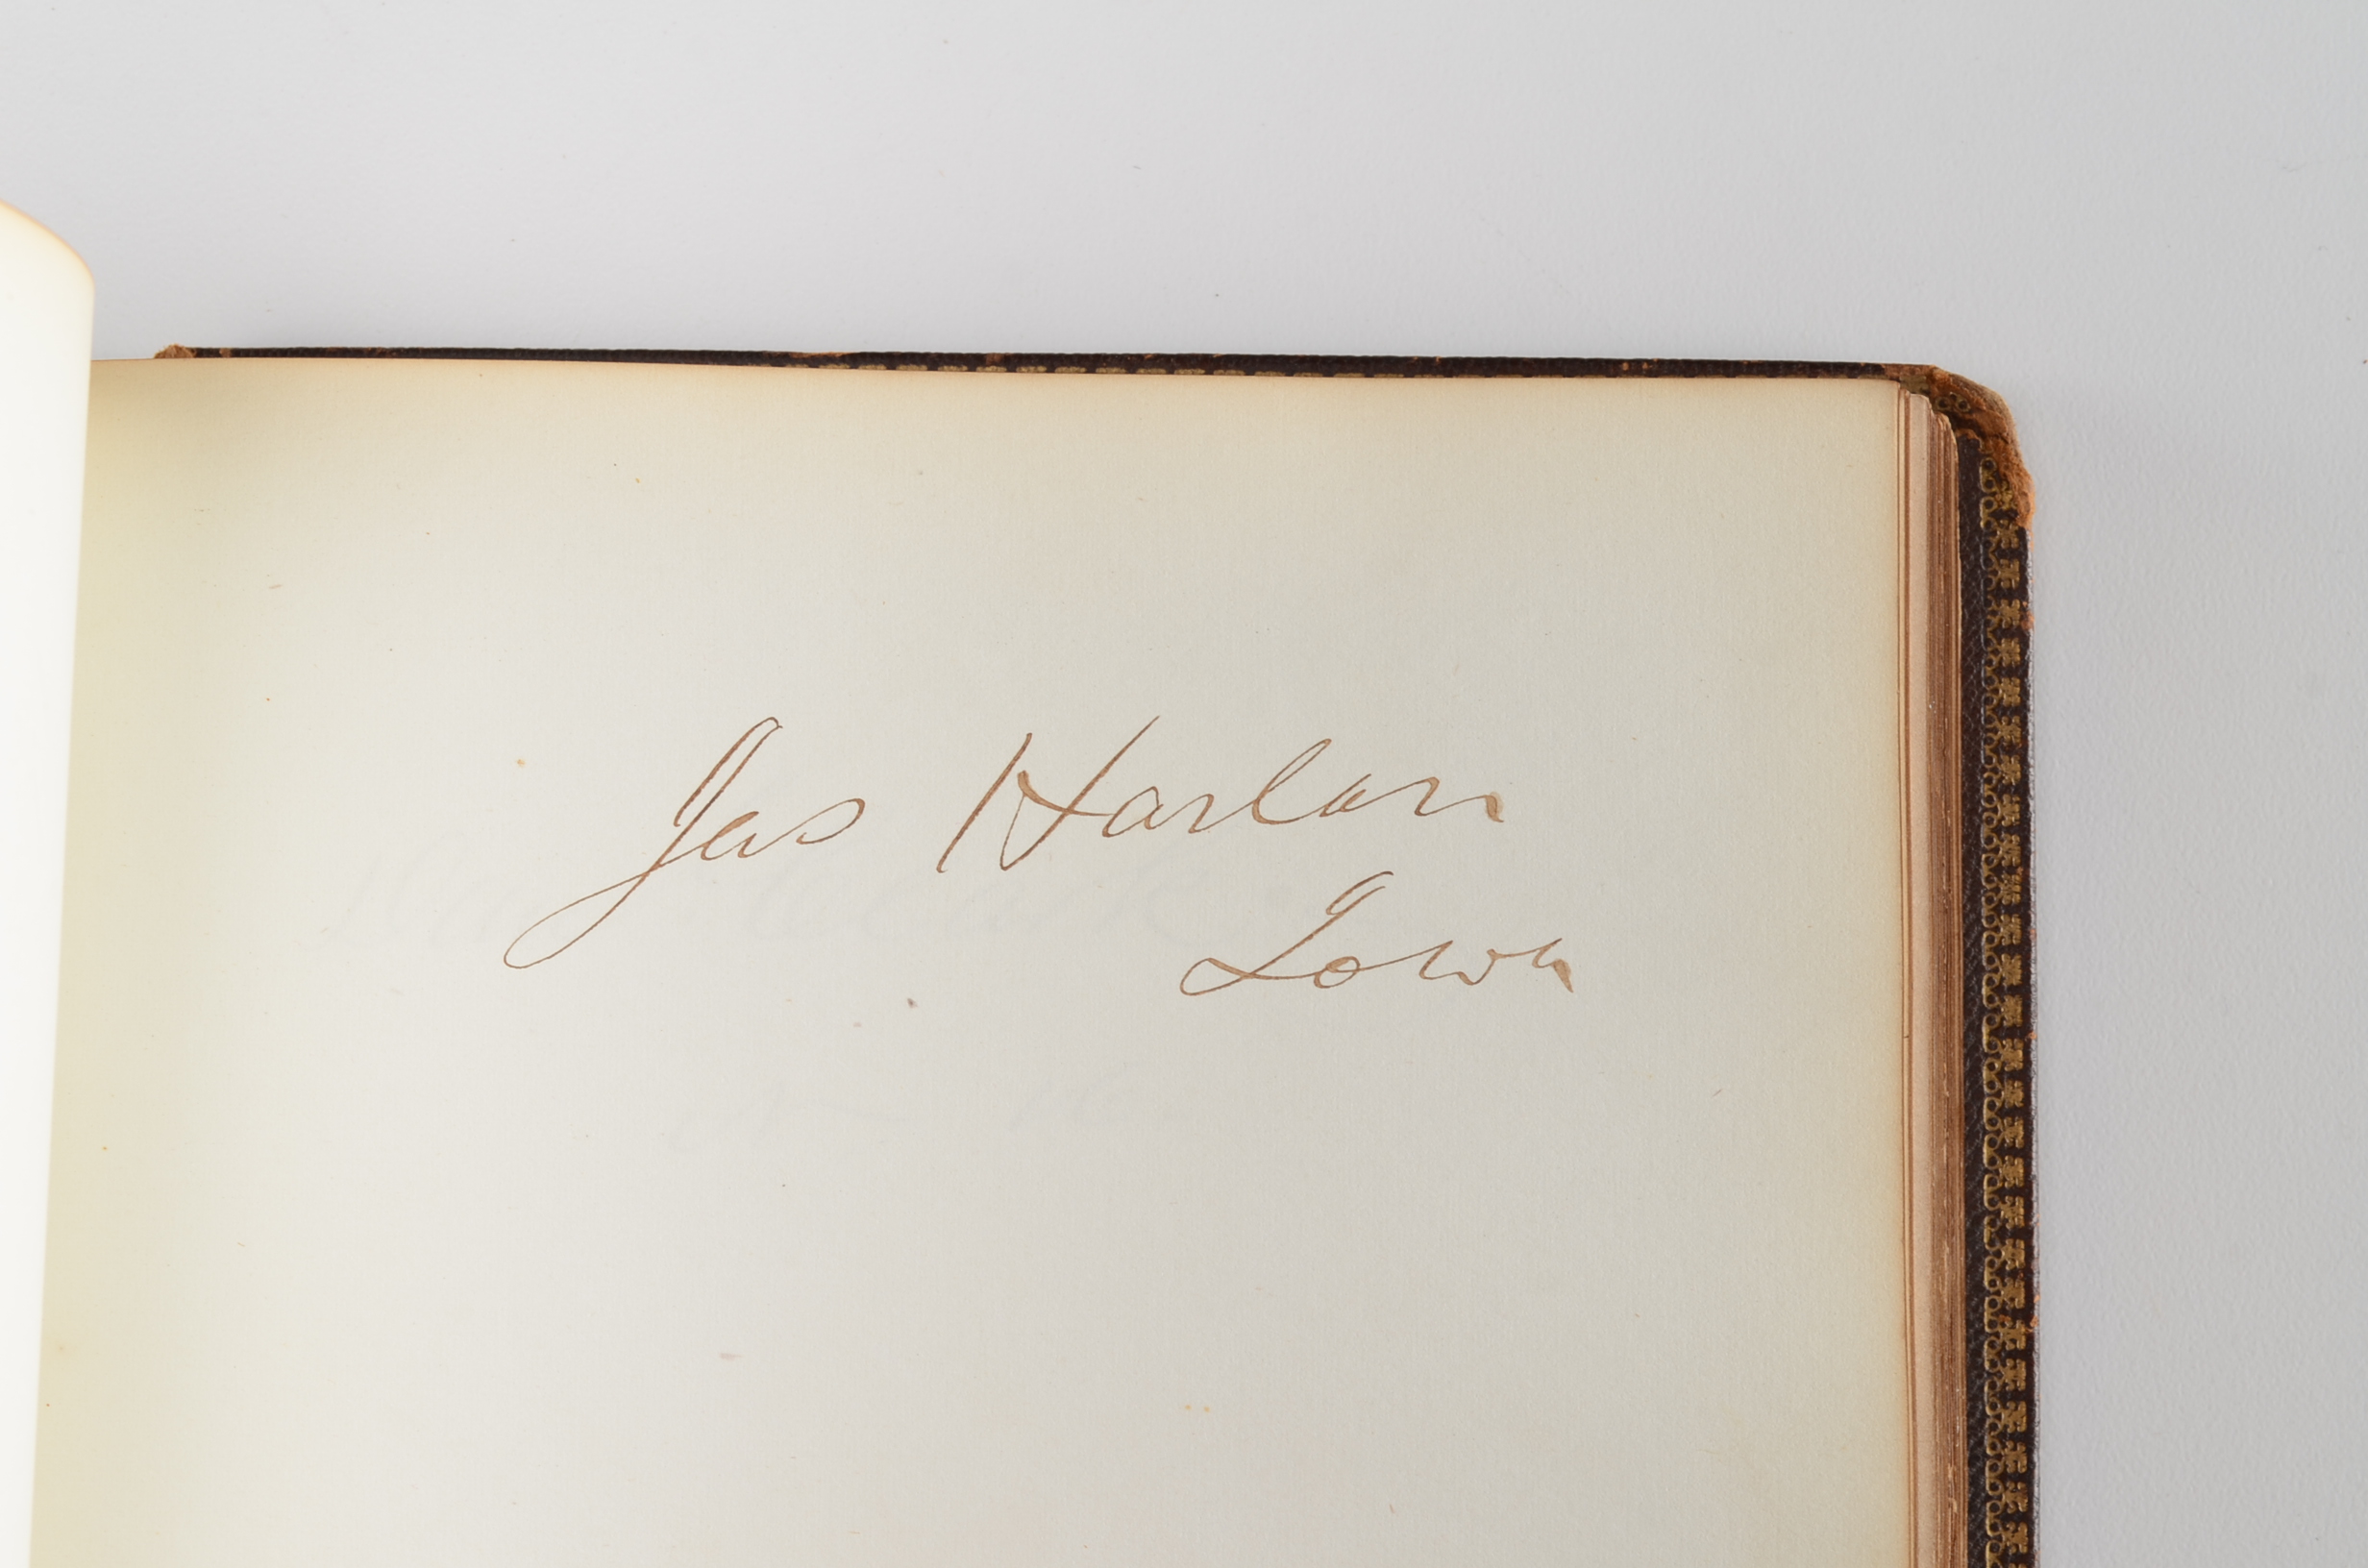 Jas Harlan
Iowa